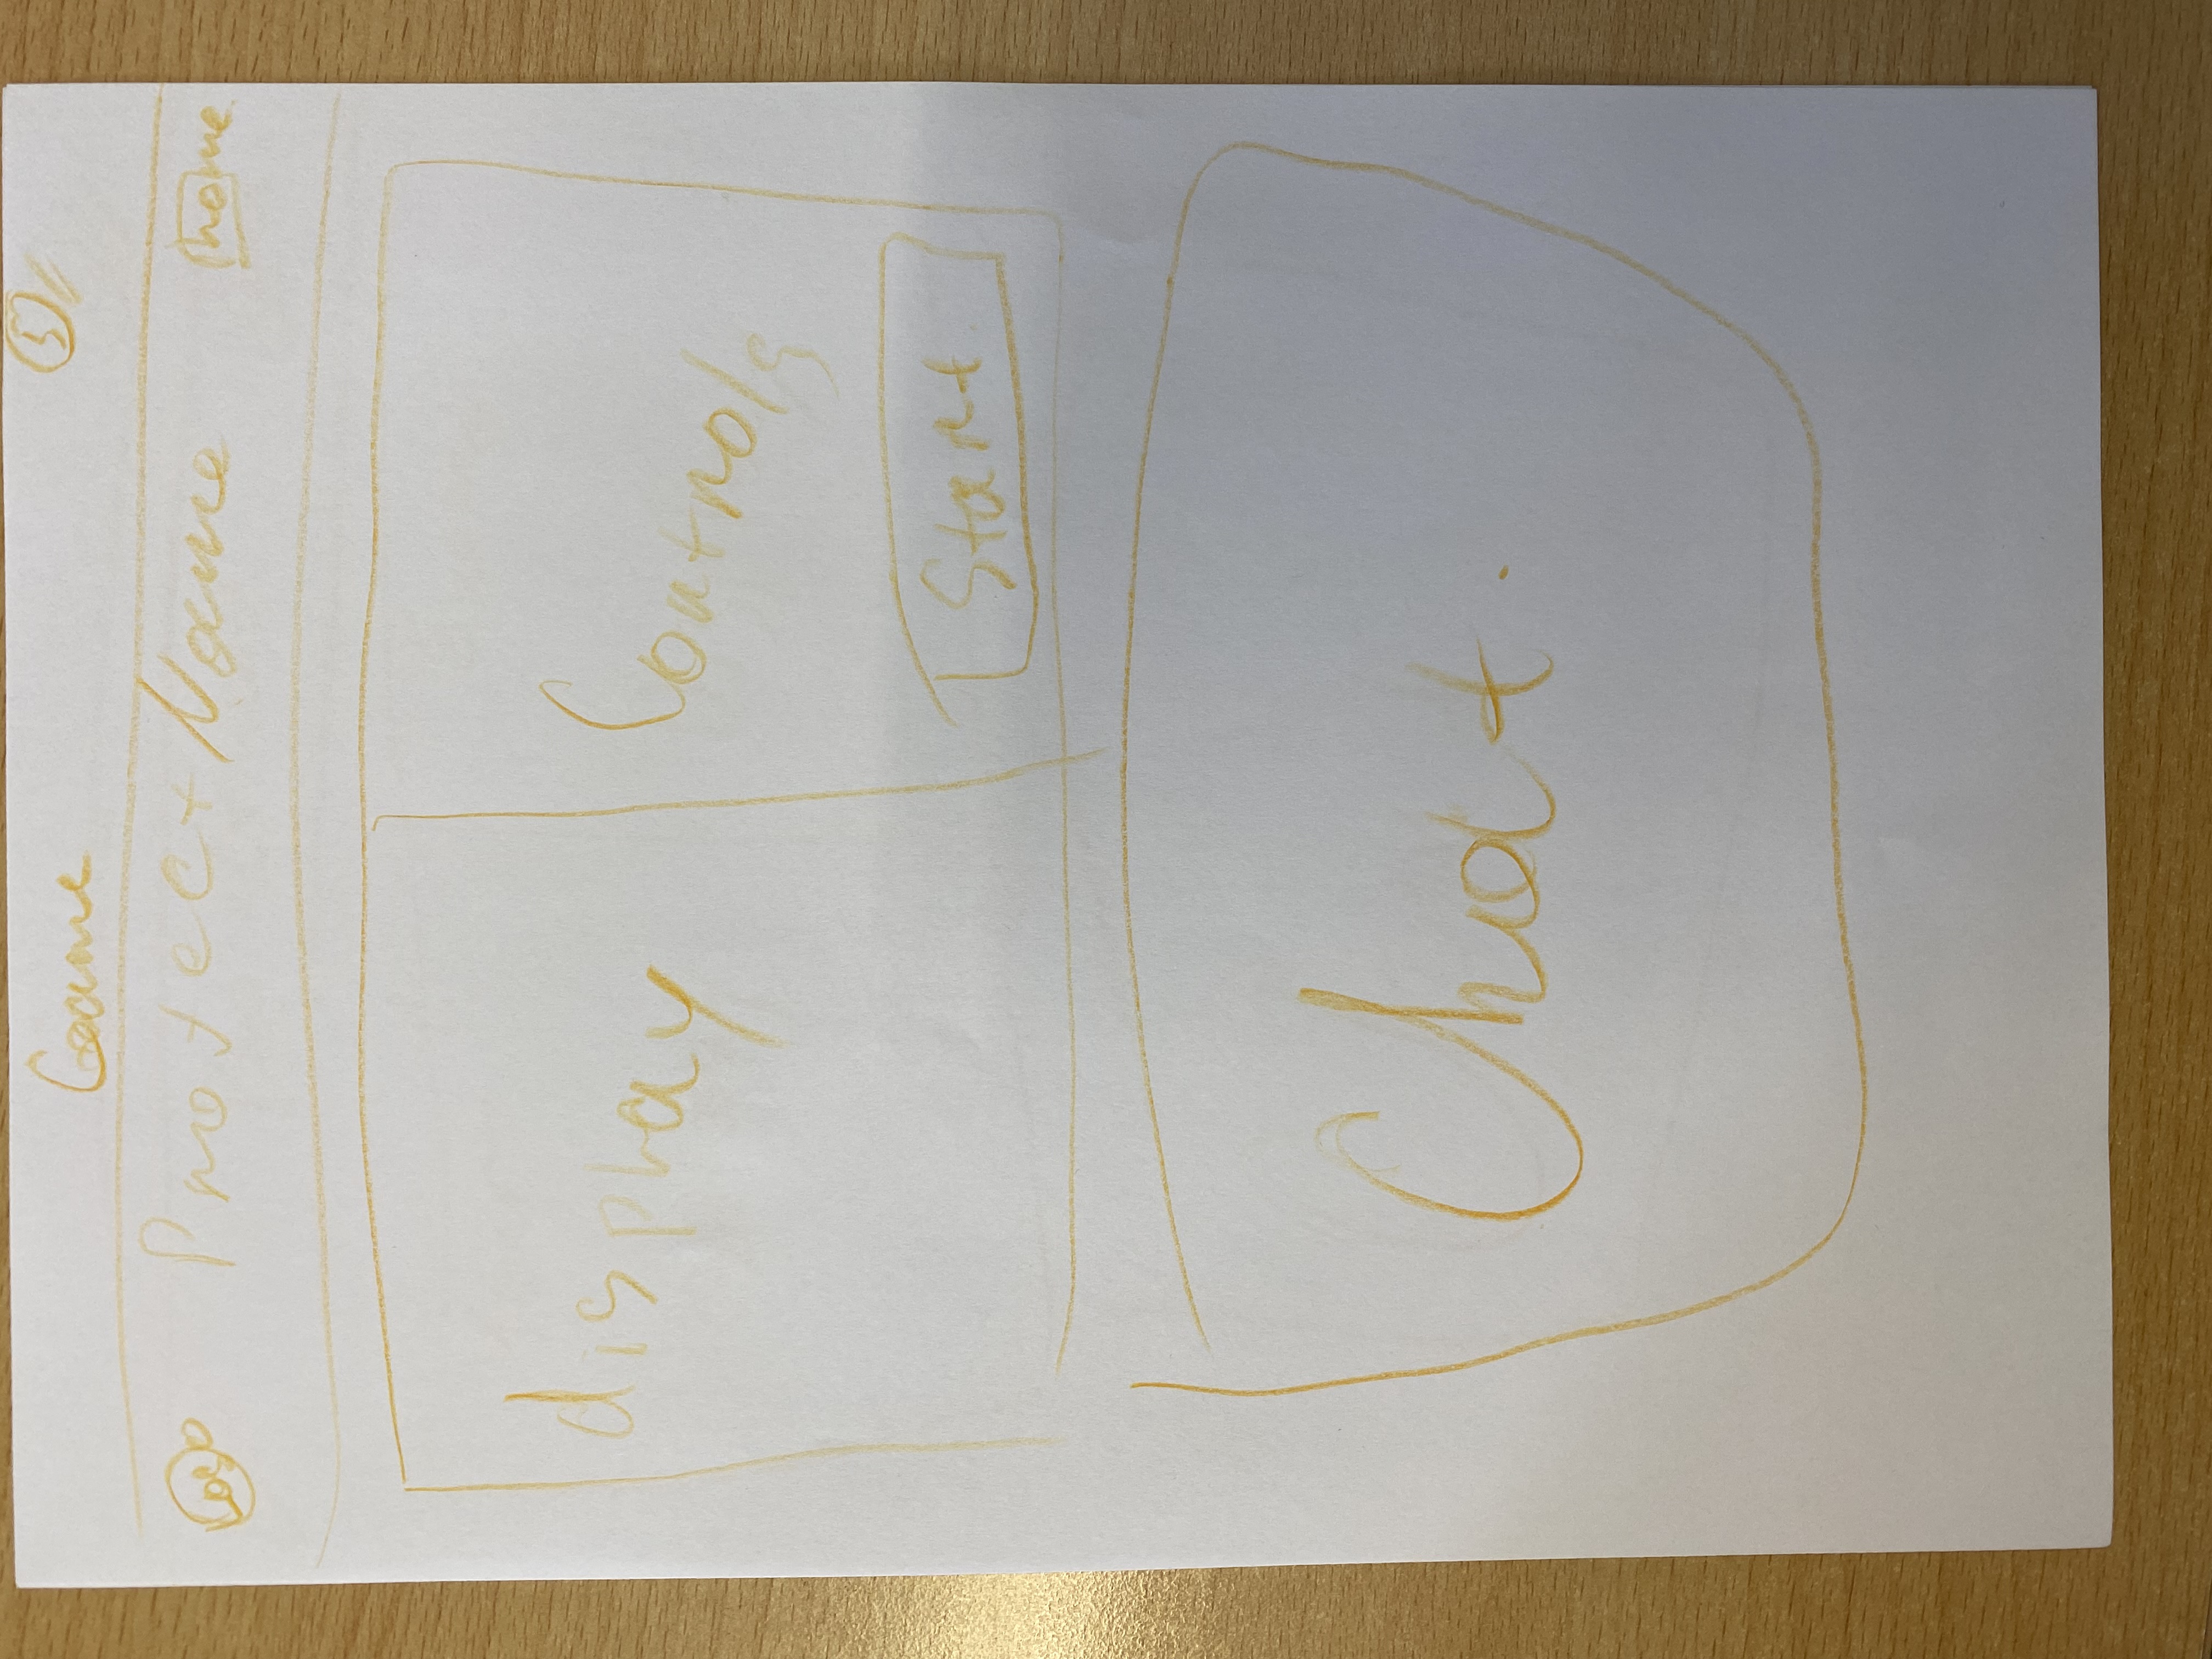 Game 5
Logo Project Name home
display Controls
Start
Chat.